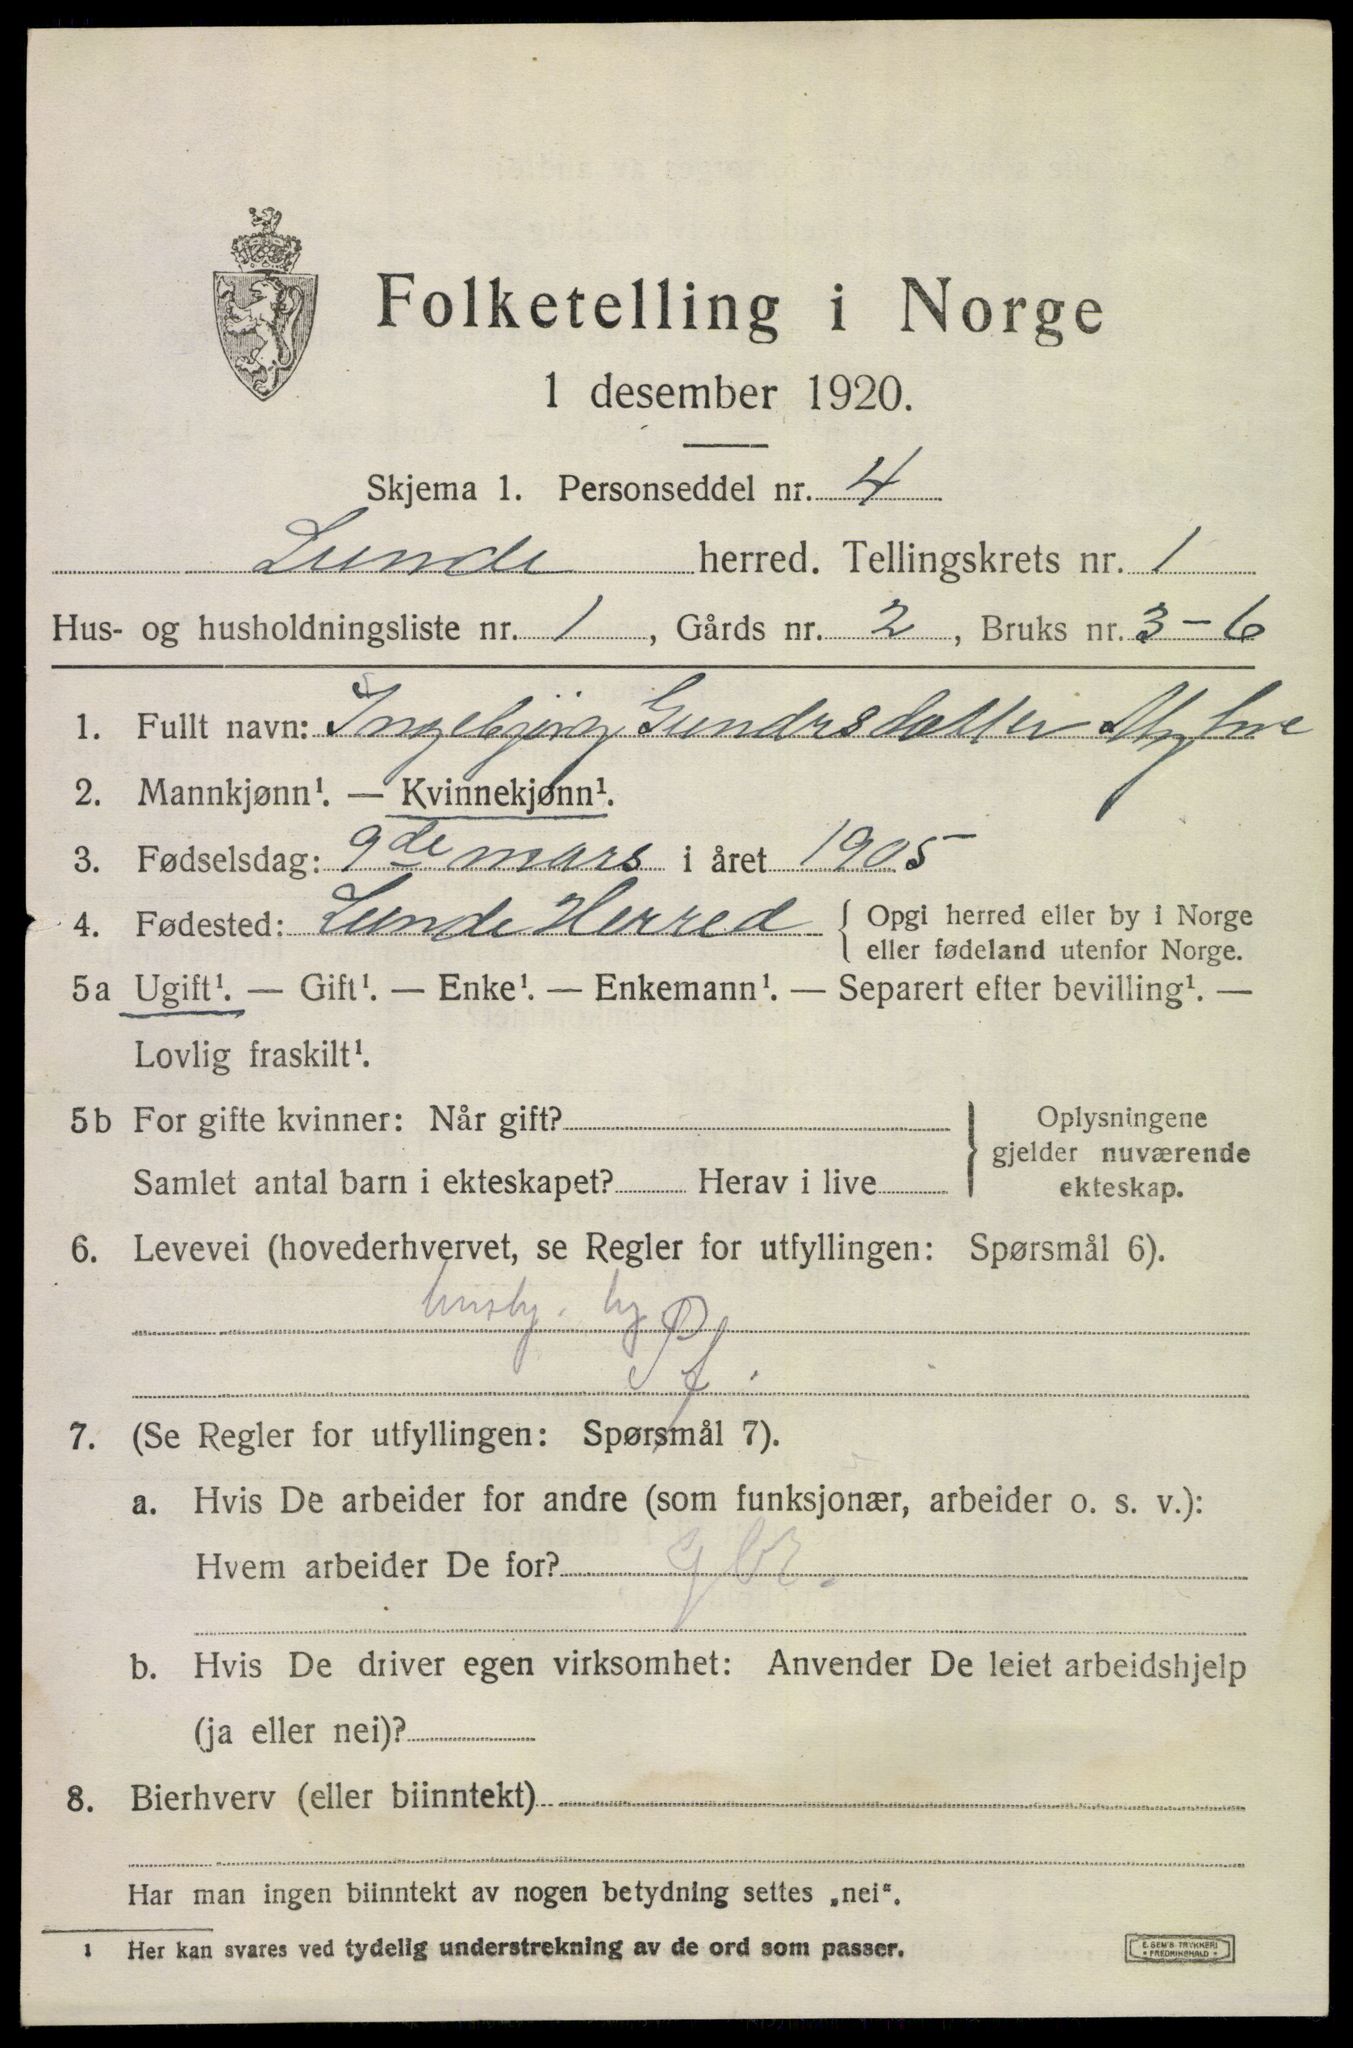 Folketelling i Norge
1 desember 1920.
Skjema 1. Personseddel nr. 4
Lunde herred. Tellingskrets nr. 1
Hus- og husholdningsliste nr. 1, Gårds nr. 2, Bruks nr. 3-6
1. Fullt navn: Ingebjörg Gundrsdatter
2. Mannkjønn¹. — Kvinnekjønn¹.
3. Fødselsdag: 9de mars i året 1905
4. Fødested: Lunde Herred { Opgi herred eller by i Norge
eller fødeland utenfor Norge.
5a Ugift¹. — Gift¹. — Enke¹. — Enkemann¹. — Separert efter bevilling¹. —
Lovlig fraskilt¹.
5b For gifte kvinner: Når gift?
Samlet antal barn i ekteskapet? Herav i live
} Oplysningene
gjelder nuværende
ekteskap.
6. Levevei (hovederhvervet, se Regler for utfyllingen: Spørsmål 6).
7. (Se Regler for utfyllingen: Spørsmål 7).
a. Hvis De arbeider for andre (som funksjonær, arbeider o. s. v.):
Hvem arbeider De for? gbr.
b. Hvis De driver egen virksomhet: Anvender De leiet arbeidshjelp
(ja eller nei)?
8. Bierhverv (eller biinntekt)
Har man ingen biinntekt av nogen betydning settes „nei“.
¹ Her kan svares ved tydelig understrekning av de ord som passer.
E. SEM'S TRYKKERI
• FREDRIKSHALD •